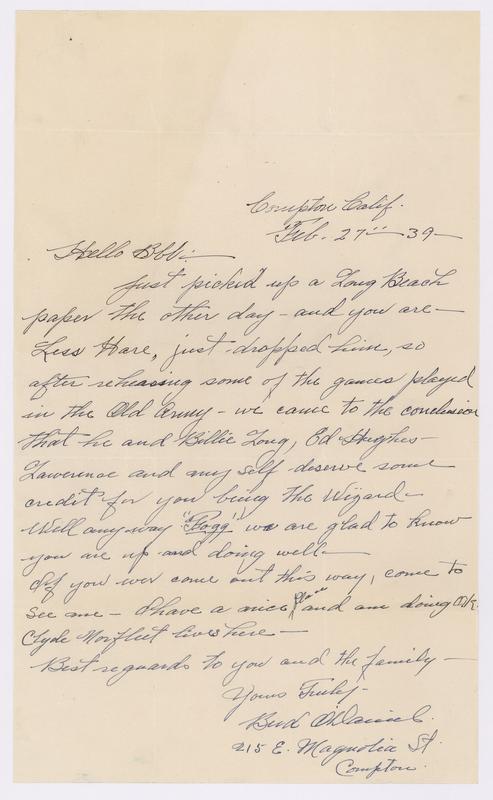 Compton Calif.
Feb. 27th - 39 -
Hello
Just picked up a Long Beach
paper the other day - and you are -
Less Hare, just dropped him, so
after rehearsing some of the games played
in the Old Army - we came to the conclusion
that he and Billie Long, Ed Hughes -
Lawerence and my self deserve some
credit for you being the Wizard -
Well any way "Bogg" we are glad to know
you are up and doing well -
If you ever come out this way, come to
see me - I have a nice place and am doing O.K.
Clyde Norfleet lives here -
Best reguards to you and the family -
Yours Truly -
Bud
215 E. Magnolia St.
Compton.